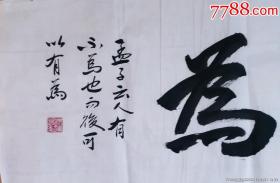 7788.com
為
孟子云人有
不為也而後可
以有為